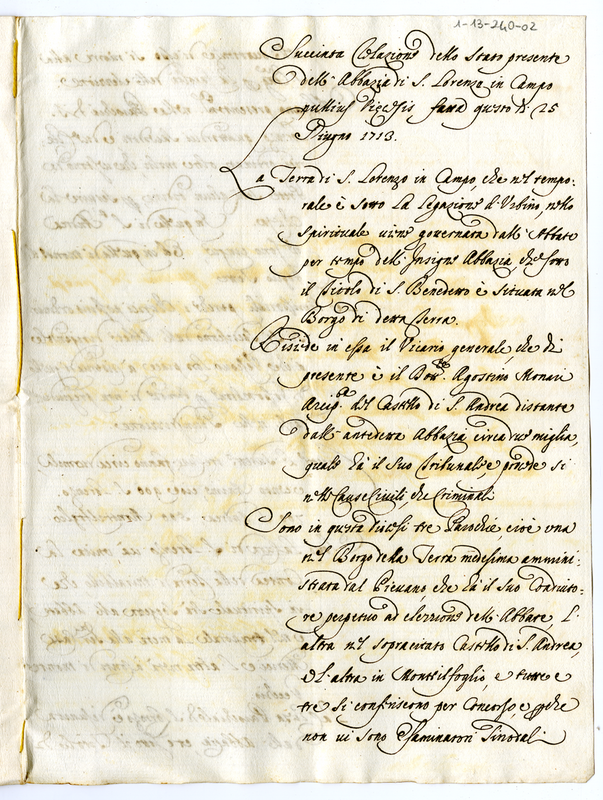 1-13-240-02
Succinta Relazione dello Stato presente
dell' Abbazia di S. Lorenzo in Campo
nullius Diecesis fatta questo dì 25
Giugno 1713.
La Terra di S. Lorenzo in Campo, che nel tempo:
rale è sotto la Legazione d'Urbino, nello
spirituale viene governata dall' Abbate
per tempo dell' Insigne Abbazia, che sotto
il Titolo di S. Benedetto è situata nel
Borgo di detta Terra.
Risiede in essa il Vicario generale, che di
presente è il Agostino Monari
Arcip.te del Castello di S. Andrea distante
dall' antedetta Abbazia circa due miglia,
quale hà il suo Tribunale, e procede sì
nelle Cause Civili, che Criminali
Sono in questa diecesi tre Parochie, cioè una
nel Borgo della Terra medesima ammini:
strata dal Pievano che hà il suo Coadiuto:
re perpetuo ad elezzione dell' Abbate, l'
altra nel sopracitato Castello di S. Andrea,
e l'altra in Montalfoglio, e tutte e
tre si conferiscono per Concorso, e perche
non vi sono Esaminatori Sinodali